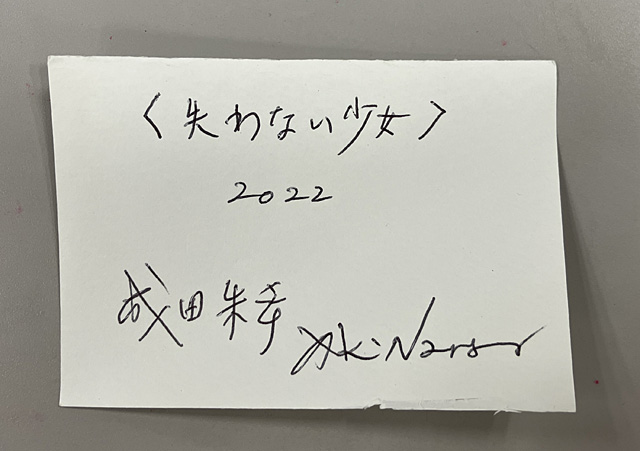 〈失わない少女〉
2022
成田朱希 Aki Narita